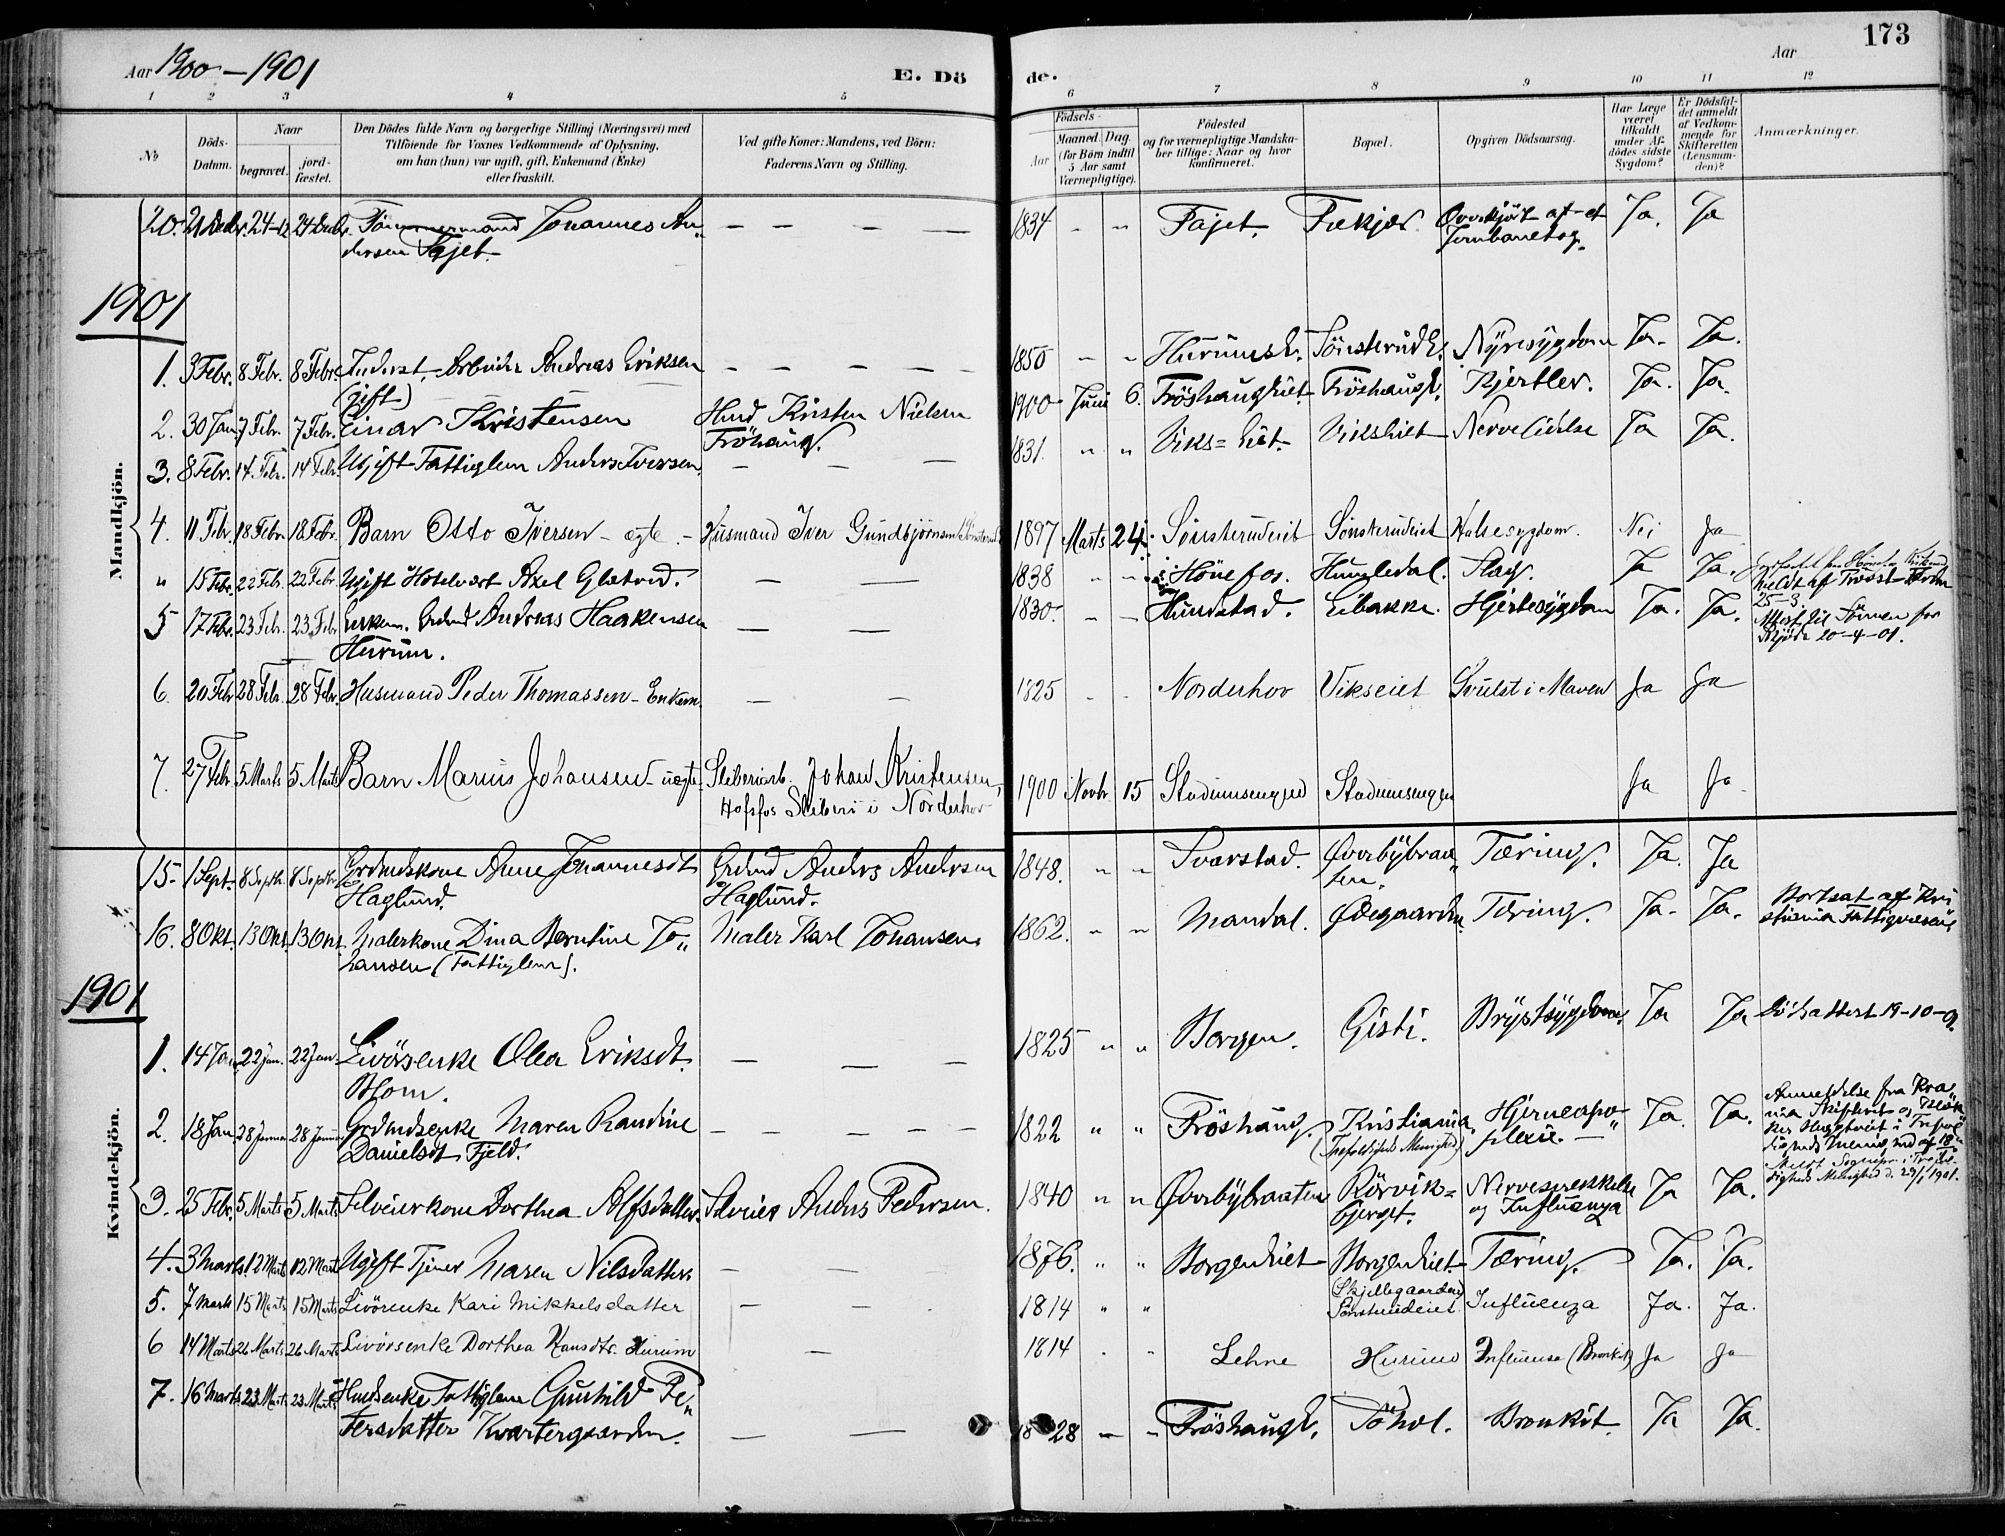 Aar 1900-1901
E. Dö
de.
Aar
173
1 2 3 4 5 6 7 8 9 10 11 12
No
Döds-Datum.
Naar
begravet.
jord-fæstet.
Den Dödes fulde Navn og borgerlige Stilling (Næringsvei) med
Tilföiende for Voxnes Vedkommende af Oplysning,
om han (hun) var ugift, gift, Enkemand (Enke)
eller fraskilt.
Ved gifte Koner: Mandens, ved Börn:
Faderens Navn og Stilling.
Födsels-
Aar
Maaned. Dag.
(for Börn indtil
5 Aar samt
Værnepligtige).
Födested
og for værnepligtige Mandska-
ber tillige: Naar og hvor
konfirmeret.
Bopæl.
Opgiven Dödsaarsag.
Har Læge
været
tilkaldt
under Af-
dödes sidste
Sygdom?
Er Dödsfal-
det anmeldt
af Vedkom-
mende for
Skifteretten
(Lensman-
den)?
Anmærkninger.
Mandkjön.
20. 21 Decbr. 24-12 24 Decbr. Tömmermand Johannes An- — — — — 1834 " " Fajet. Fækjær Overkjört af et Ja. Ja
dersen Fajet. Jernbanetog.
1901
1. 3 Febr. 8 Febr. 8 Febr. Inderst, Arbeider Andreas Eriksen — — — — — 1850 " " Hurumsk. Sönsterudk. Nyresygdom Ja. Ja.
(gift)
2. 30 Jan. 7 Febr. 7 Febr. Einar Kristensen Hmd Kristen Nielsen 1900 Juni 6. Fröshaugeiet. Fröshaugk. Kjertler. Ja. Ja.
Fröhaug.
3. 8 Febr. 14 Febr. 14 Febr. Ugift Fattiglem Anders Iversen. — — — 1831. " " Viks=eiet. Vikseiet Nervelidelse Ja Ja.
4. 11 Febr. 18 Febr. 18 Febr. Barn Otto Iversen - ægte. - Husmand Iver Gundbjörnsen 1897 Marts 24. Sönsterudeiet Sönsterudeiet Halsesygdom. Nei Ja
" 15 Febr. 22 Febr. 22 Febr. Ugift Hotelvært Axel Glatved. — — 1838 " " Hönefos. Humledal. Slag. Ja Ja.
meldt af Prost
25-3.
5 17 Febr. 23 Febr. 23 Febr. Enkem. Grdmd Andreas Haakensen — — 1830. - - Hundstad. Eibakke. Hjertesygdom Ja. Ja. Attest til
20-4-01.
Hurum.
6. 20 Febr 28 Febr. 28 Febr. Husmand Peder Thomassen - Enkem. — — 1825 - - Norderhov Vikseiet Svulst i Maven Ja Ja
7. 27 Febr. 5 Marts 5 Marts Barn Marius Johansen - uægte - Sliberiarb. Johan Kristensen, 1900 Novbr. 15 Stadumsenged Stadumsengen Ja Ja
Hofsfos Sliberi i Norderhov
Kvindekjön.
15. 1 Sept. 8 Septbr. 8 Septbr. Grdmdskone Anne Johannesdt Grdmd Anders Andersen 1848. " " Svarstad. Överbybraa- Tæring. Ja. Ja
Haglund. Haglund. ten.
16. 8 Okt. 13 Okt. 13 Okt. Malerkone Dina Berntine Jo- Maler Karl Johansen. 1862. " " Mandal. Ödegaarden. Tæring. Ja. Ja. Bortsat af Kri
hansen (Fattiglem). stiania Fattigvæsen
1901
1. 14 Jan. 22 Jan. 22 Jan. Livörsenke Olea Eriksdt. — — — 1825 " " Borgen. Gisti. Brystsygdom. Ja Ja Dödsattest 19-10-01
Blom.
2. 18 Jan. 28 Januar 28 Januar Grdmdsenke Maren Randine — — — — — 1822 " " Fröshaug. Kristiania. Hjerneapo- Ja. Ja. Anmeldelse fra Kra
Danielsdt Fjeld. (Trefoldigheds Menighed) plexi. —
3. 25 Febr. 5 Marts 5 Marts Selveierkone Dorthea Alfsdatter. Selveier Anders Pedersen. 1840 " " Överbybraaten Rörvik= Nervesvekkelse Ja Ja.
bjerget. og Influenza
4. 3 Marts. 12 Marts 12 Marts Ugift Tjener Maren Nilsdatter. — — 1876. " " Borgeneiet Borgeneiet. Tæring. Ja. Ja.
5. 7 Marts 15 Marts 15 Marts Livörenke Kari Mikkelsdatter — - . 1814 " " Skjellegaarden Influenza Ja. Ja.
Sönsterudeiet
6 14 Marts 26 Marts 26 Marts Livörsenke Dorthea Hansdtr. Hurum — 1814 . . Lehne Hurum Influensa (Bronkit) Ja Ja
7. 16 Marts 23 Marts 23 Marts Hmdsenke Fattiglem Gunhild Pe- — — 1828 — " Fröshaugk. Töhol. Bronkit. Ja Ja.
tersdatter Kvartergaarden.